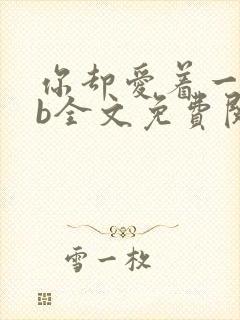 你却爱着一
b全文免费阅
雪一枚